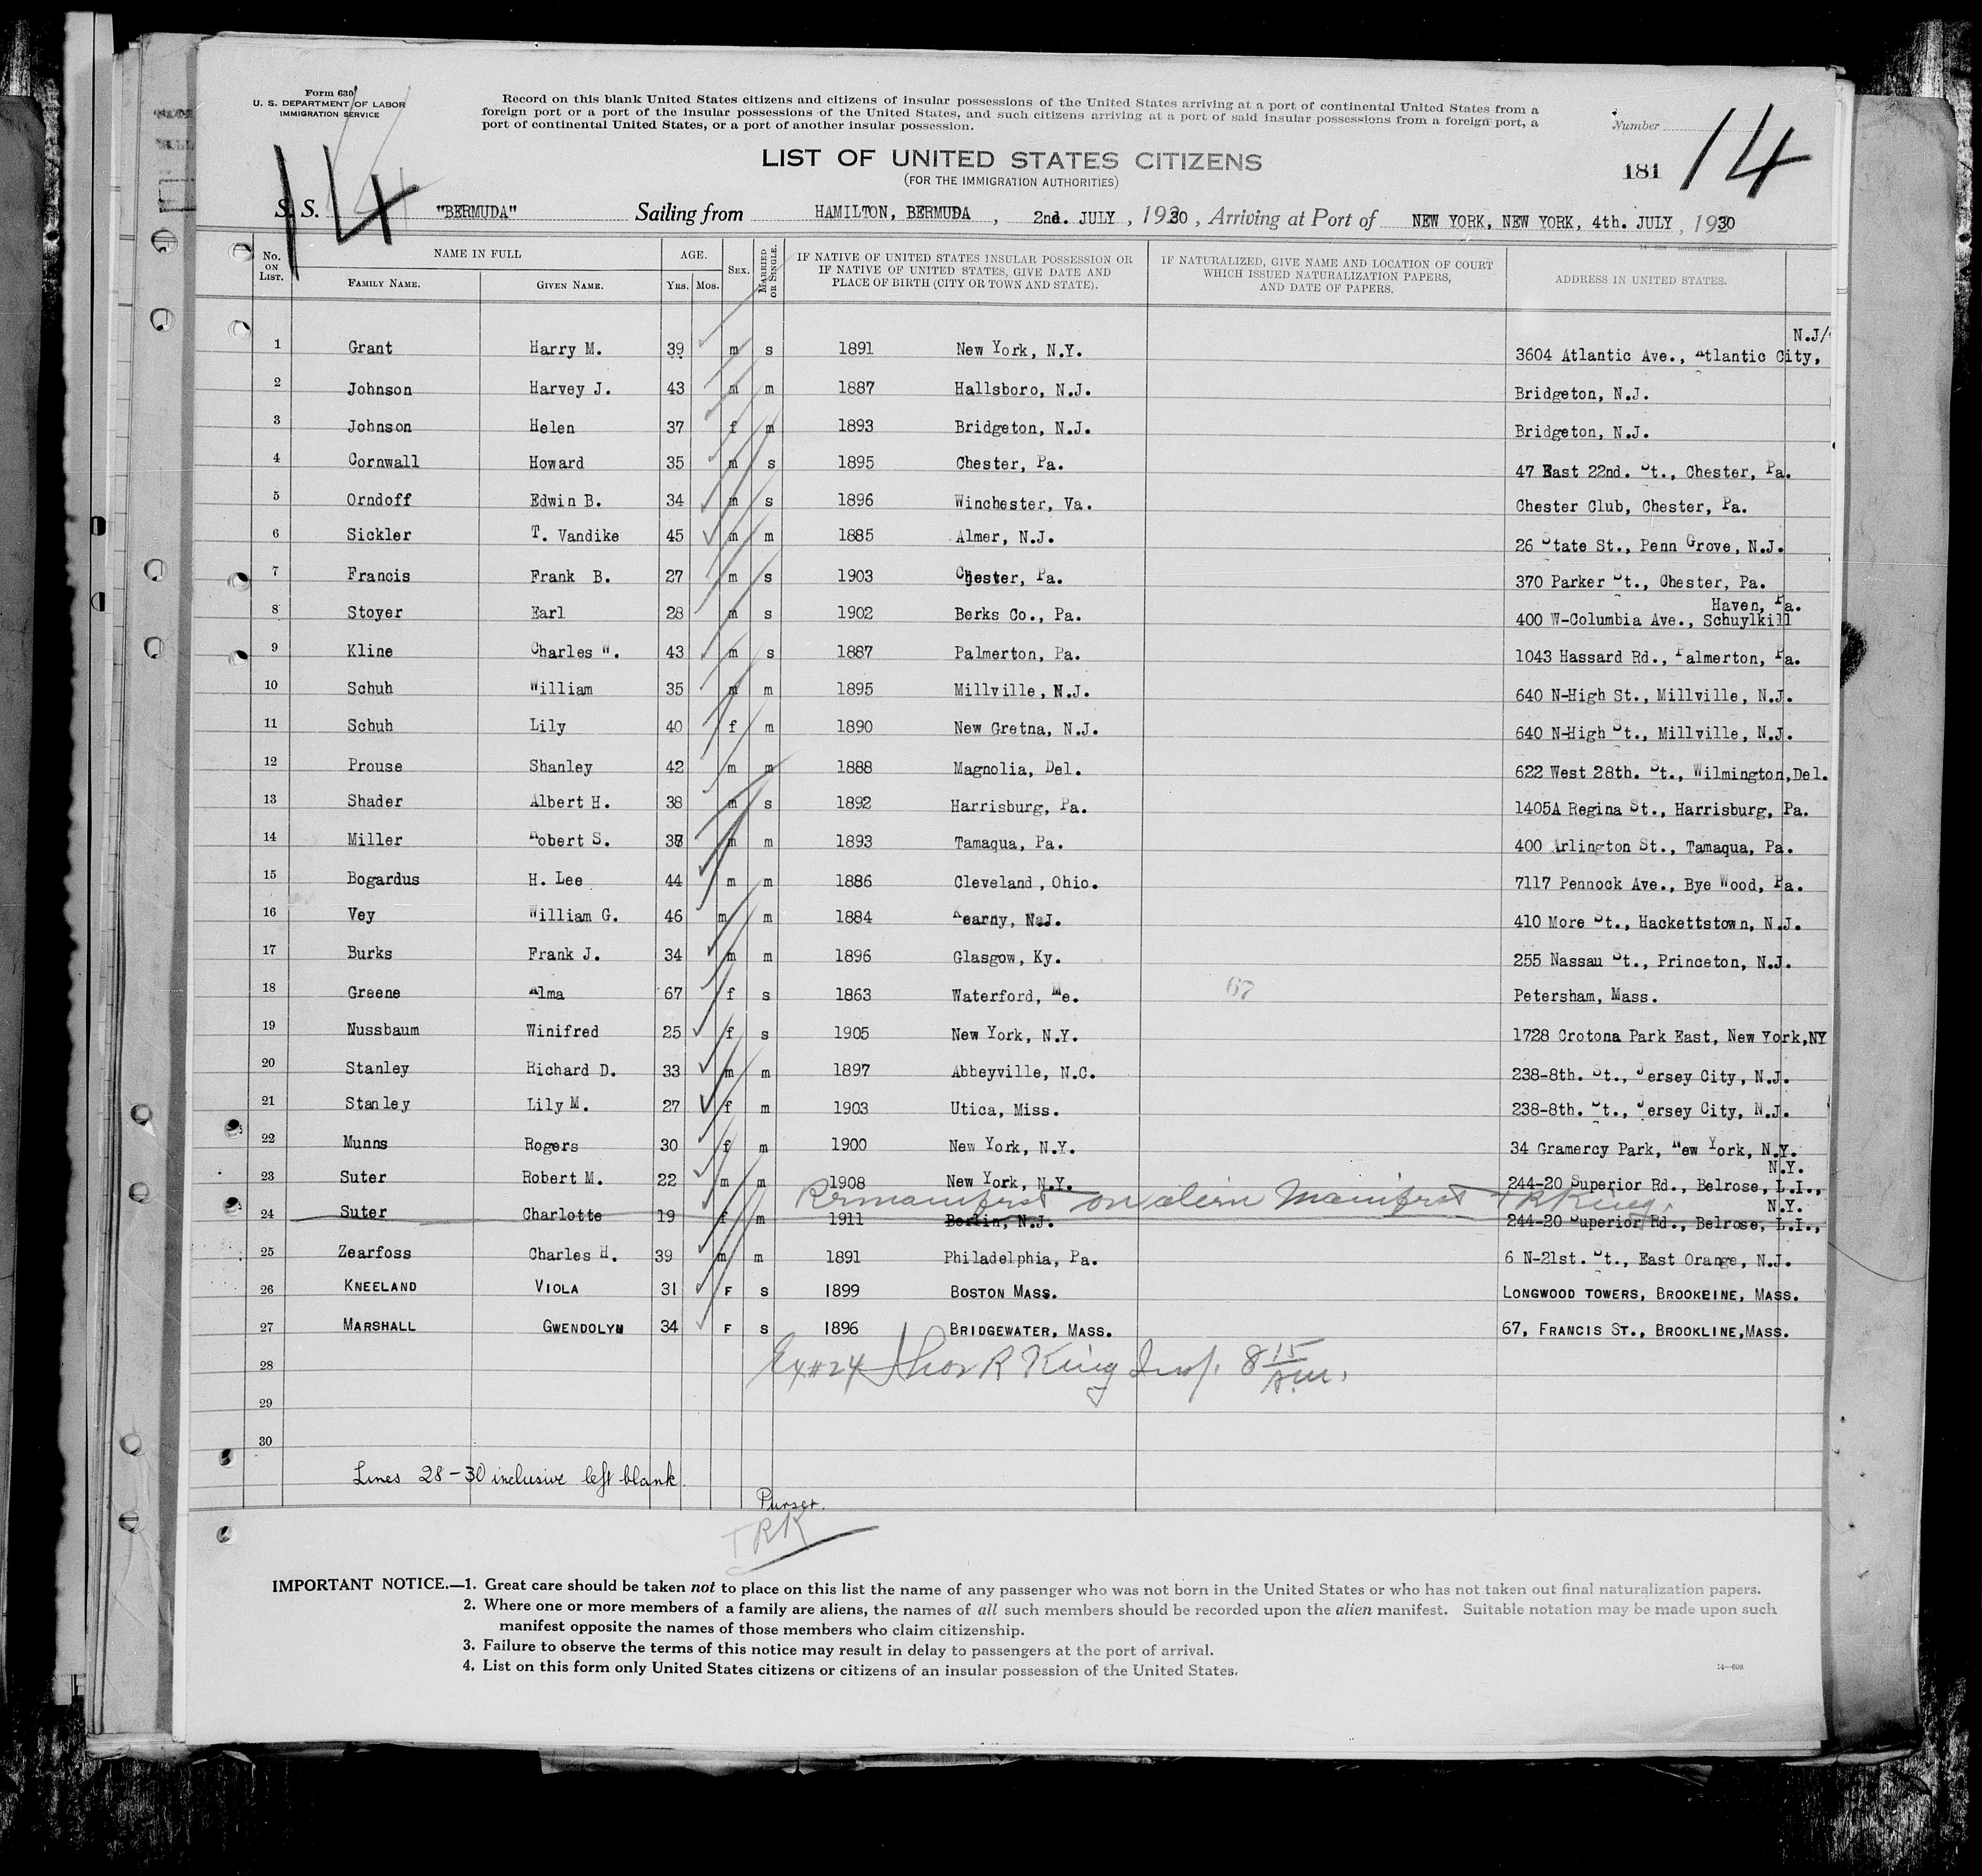 Form 630
U. S. DEPARTMENT OF LABOR
IMMIGRATION SERVICE
Record on this blank United States citizens and citizens of insular possessions of the United States arriving at a port of continental United States from a
foreign port or a port of the insular possessions of the United States, and such citizens arriving at a port of said insular possessions from a foreign port, a
port of continental United States, or a port of another insular possession.
Number
14
LIST OF UNITED STATES CITIZENS
(FOR THE IMMIGRATION AUTHORITIES)
181
14
S. S. "BERMUDA" Sailing from HAMILTON, BERMUDA, 2nd. JULY, 1930, Arriving at Port of NEW YORK, NEW YORK, 4th. JULY, 1930
No. ON LIST. NAME IN FULL AGE. SEX. MARRIED OR SINGLE. IF NATIVE OF UNITED STATES INSULAR POSSESSION OR IF NATIVE OF UNITED STATES, GIVE DATE AND PLACE OF BIRTH (CITY OR TOWN AND STATE). IF NATURALIZED, GIVE NAME AND LOCATION OF COURT WHICH ISSUED NATURALIZATION PAPERS, AND DATE OF PAPERS. ADDRESS IN UNITED STATES.
FAMILY NAME. GIVEN NAME. YRS. MOS.
1 Grant Harry M. 39 m s 1891 New York, N.Y. 3604 Atlantic Ave., Atlantic City, N.J/
2 Johnson Harvey J. 43 m m 1887 Hallsboro, N.J. Bridgeton, N.J.
3 Johnson Helen 37 f m 1893 Bridgeton, N.J. Bridgeton, N.J.
4 Cornwall Howard 35 m s 1895 Chester, Pa. 47 East 22nd. St., Chester, Pa.
5 Orndoff Edwin B. 34 m s 1896 Winchester, Va. Chester Club, Chester, Pa.
6 Sickler T. Vandike 45 m m 1885 Almer, N.J. 26 State St., Penn Grove, N.J.
7 Francis Frank B. 27 m s 1903 Chester, Pa. 370 Parker St., Chester, Pa.
8 Stoyer Earl 28 m s 1902 Berks Co., Pa. 400 W-Columbia Ave., Schuylkill Haven, Pa.
9 Kline Charles W. 43 m s 1887 Palmerton, Pa. 1043 Hassard Rd., Palmerton, Pa.
10 Schuh William 35 m m 1895 Millville, N.J. 640 N-High St., Millville, N.J.
11 Schuh Lily 40 f m 1890 New Gretna, N.J. 640 N-High St., Millville, N.J.
12 Prouse Shanley 42 m m 1888 Magnolia, Del. 622 West 28th. St., Wilmington,Del.
13 Shader Albert H. 38 m s 1892 Harrisburg, Pa. 1405A Regina St., Harrisburg, Pa.
14 Miller Robert S. 37 m m 1893 Tamaqua, Pa. 400 Arlington St., Tamaqua, Pa.
15 Bogardus H. Lee 44 m m 1886 Cleveland, Ohio. 7117 Pennock Ave., Bye Wood, Pa.
16 Vey William G. 46 m m 1884 Kearny, N.J. 410 More St., Hackettstown, N.J.
17 Burks Frank J. 34 m m 1896 Glasgow, Ky. 255 Nassau St., Princeton, N.J.
18 Greene Alma 67 f s 1863 Waterford, Me. 67 Petersham, Mass.
19 Nussbaum Winifred 25 f s 1905 New York, N.Y. 1728 Crotona Park East, New York,NY
20 Stanley Richard D. 33 m m 1897 Abbeyville, N.C. 238-8th. St., Jersey City, N.J.
21 Stanley Lily M. 27 f m 1903 Utica, Miss. 238-8th. St., Jersey City, N.J.
22 Munns Rogers 30 f m 1900 New York, N.Y. 34 Gramercy Park, New York, N.Y.
23 Suter Robert M. 22 m m 1908 New York, N.Y. 244-20 Superior Rd., Belrose, L.I., N.Y.
Remanifest on alien Manifest TRKing.
24 Suter Charlotte 19 f m 1911 Berlin, N.J. 244-20 Superior Rd., Belrose, L.I., N.Y.
25 Zearfoss Charles H. 39 m m 1891 Philadelphia, Pa. 6 N-21st. St., East Orange, N.J.
26 KNEELAND VIOLA 31 F S 1899 BOSTON MASS. LONGWOOD TOWERS, BROOKEINE, MASS.
27 MARSHALL GWENDOLYN 34 F S 1896 BRIDGEWATER, MASS. 67, FRANCIS ST., BROOKLINE,MASS.
28 Ex #24 Thos R King Insp. 8 15 A.M.
29
30
Lines 28-30 inclusive left blank.
Purser.
TRK
IMPORTANT NOTICE.—1. Great care should be taken not to place on this list the name of any passenger who was not born in the United States or who has not taken out final naturalization papers.
2. Where one or more members of a family are aliens, the names of all such members should be recorded upon the alien manifest. Suitable notation may be made upon such
manifest opposite the names of those members who claim citizenship.
3. Failure to observe the terms of this notice may result in delay to passengers at the port of arrival.
4. List on this form only United States citizens or citizens of an insular possession of the United States.
14—608